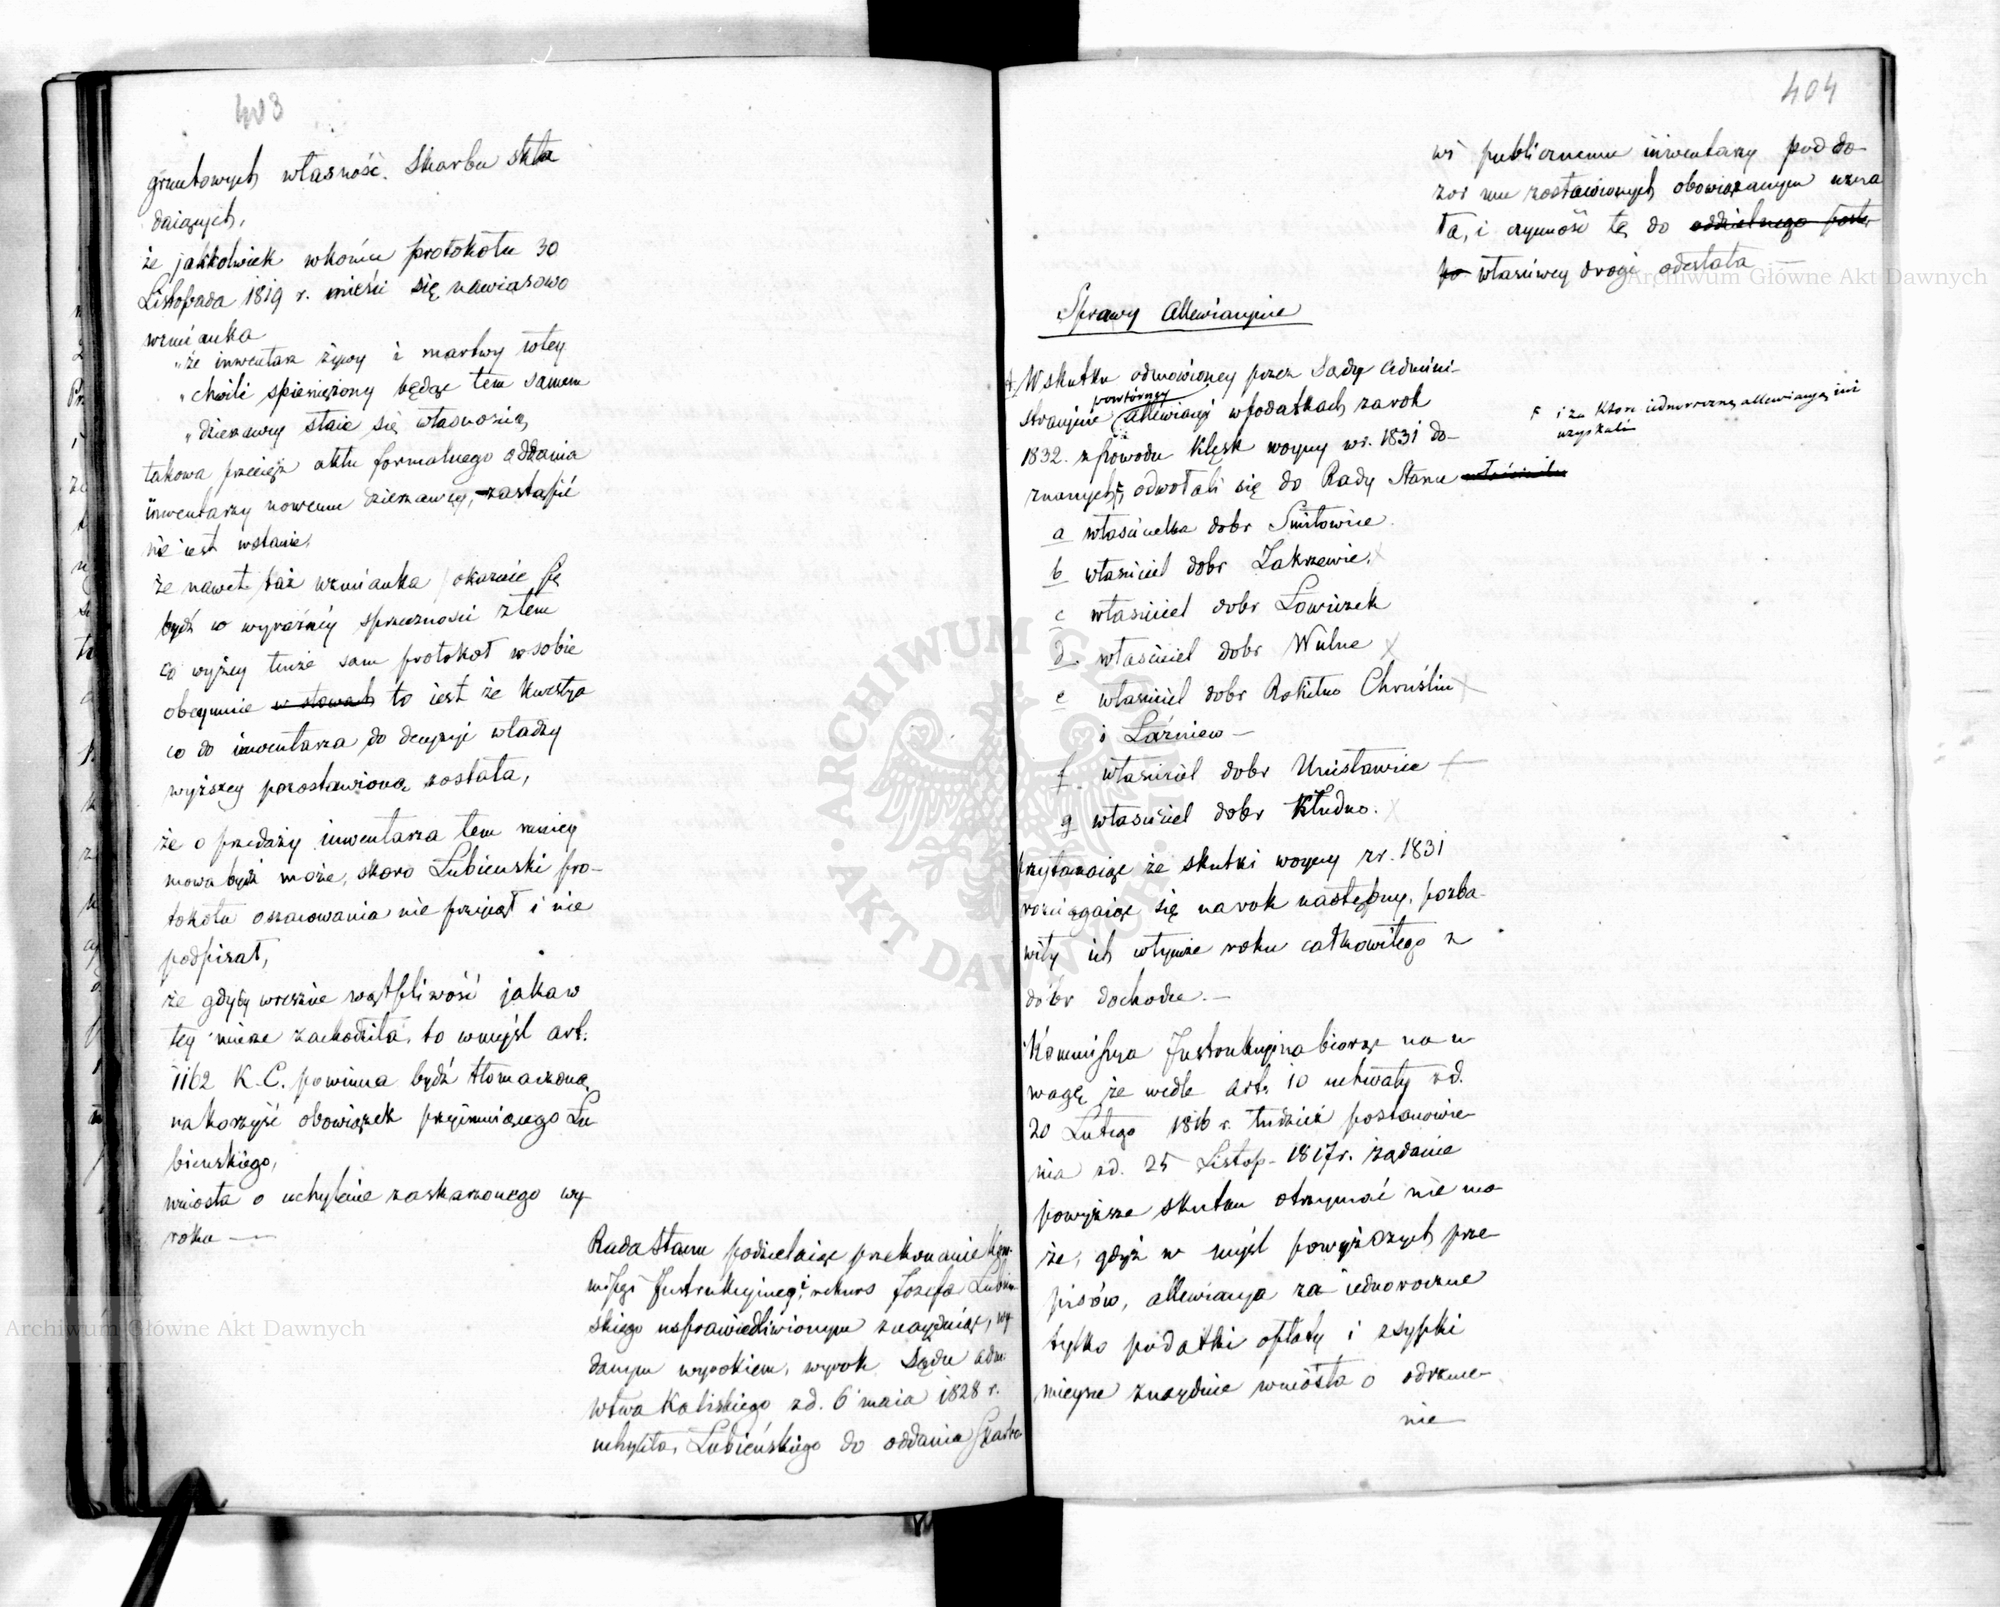 403
gruntowych własność Skarbu skła
daiących,
że jakkolwiek wkońcu protokołu 30
Listopada 1819 r. mieści się nawiasowo
wzmianka
„że inwentarz żywy i martwy wtey
„chwili spieniężony będąc tem samem
„dzierżawcy staie się własnością
takowa przecież aktu formalnego oddania
inwentarzy nowemu dzierżawcy, zastąpić
nie iest wstanie,
że nawet taż wzmianka okazuie się
bydź w wyraźney sprzeczności ztem
co wyżey tenże sam protokół wsobie
obeymuie w słowach to iest że kwestya
co do inwentarza do decyzyi władzy
wyższey pozostawioną została,
że o przedaży inwentarza tem mniey
mowa bydź może, skoro Lubieński pro-
tokołu oszacowania nie przyiął i nie
podpisał,
że gdyby wreszcie wątpliwość jaka w
tey mierze zachodziła, to wmyśl art.
1162 K. C. powinna bydź tłomaczoną
na korzyść obowiązek przyimuiącego Lu
bieńskiego,
wniosła o uchylenie zaskarżonego wy
roku —
Rada Stanu podzielaiąc przekonanie Kom-
missyi Instrukcyiney i rekurs Józefa Lubień
skiego usprawiedliwionym znayduiąc, wy
danym wyrokiem, wyrok Sądu adm
wtwa Kaliskiego zd. 6 maia 1828 r.
uchyliła, Lubieńskiego do oddania Skarbo
404
wi publicznemu inwentarzy pod do
zór mu zostawionych obowiązanym uzna
ła, i czynność tę do oddzielnego postę
po właściwey drogi odesłała —
Sprawy Allewiacyine
Wskutku odmówioney przez Sądy Admini-
stracyine powtórney allewiacyi wpodatkach za rok
1832. zpowodu klęsk woyny wr. 1831 do-
znanych, odwołali się do Rady Stanu właściciele
i za które iednoroczną allewiacyą iuż
uzyskali
a właścicielka dobr Smiłowice
b właściciel dobr Zakrzewie
c właściciel dobr Łowiczek
d. właściciel dobr Wulne
e właściciel dobr Rokitno Chruślin
i Łaźniew —
f właściciel dobr Unisławice
g właściciel dobr Kłudno.
przytaczaiąc że skutki woyny zr. 1831
rozciągaiąc się na rok następny, pozba-
wiły ich wtymże roku całkowitego z
dóbr dochodu. —
Kommissya Instrukcyina biorąc na u
wagę że wedle art. 10 uchwały zd.
20 Lutego 1816 r. tudzież postanowie-
nia zd. 25 Listop. 1817 r. żądanie
powyższe skutku otrzymać nie mo
że, gdyż w myśl powyższych prze-
pisów, allewiacya za iednoroczne
tylko podatki opłaty i zsypki
mieysce znayduie wniosła o odrzuce-
nie
Archiwum Główne Akt Dawnych
Archiwum Główne Akt Dawnych
ARCHIWUM GŁÓWNE AKT DAWNYCH